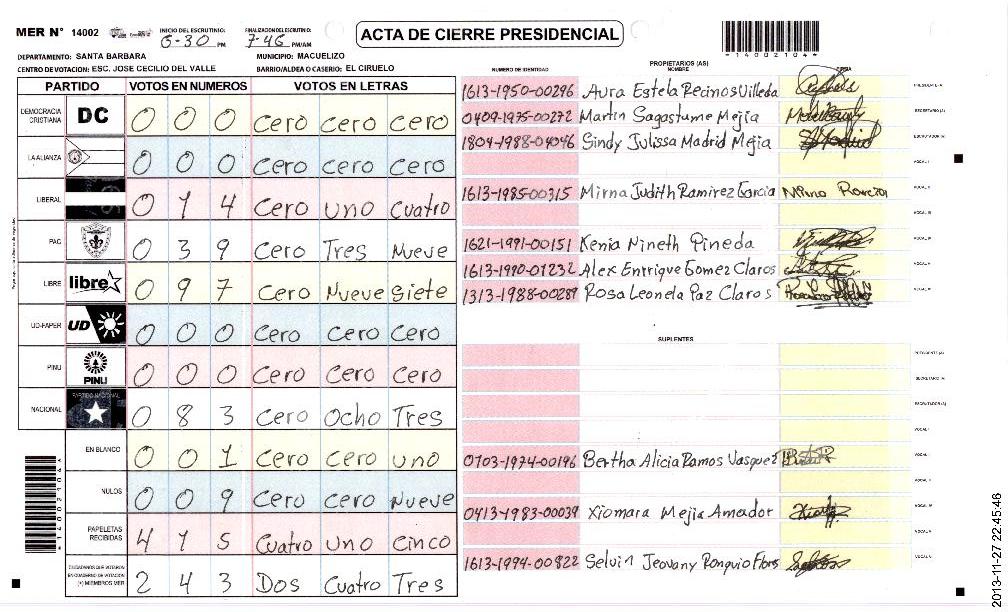 MER N° 14002 INICIO DEL ESCRUTINIO: 6-30 PM FINALIZACION DEL ESCRUTINIO: 7-46 PM/AM
ACTA DE CIERRE PRESIDENCIAL
*14002104*
DEPARTAMENTO: SANTA BARBARA MUNICIPIO: MACUELIZO
CENTRO DE VOTACION: ESC. JOSE CECILIO DEL VALLE BARRIO/ALDEA O CASERIO: EL CIRUELO
PARTIDO VOTOS EN NUMEROS VOTOS EN LETRAS
DEMOCRACIA CRISTIANA DC 0 0 0 Cero cero cero
LA ALIANZA 0 0 0 Cero cero cero
LIBERAL 0 1 4 Cero Uno Cuatro
PAC 0 3 9 Cero Tres Nueve
LIBRE libre 0 9 7 Cero Nueve Siete
UD-FAPER UD 0 0 0 Cero Cero Cero
PINU PINU 0 0 0 Cero Cero Cero
NACIONAL PARTIDO NACIONAL 0 8 3 Cero Ocho Tres
EN BLANCO 0 0 1 Cero Cero uno
NULOS 0 0 9 Cero Cero Nueve
PAPELETAS RECIBIDAS 4 1 5 Cuatro Uno Cinco
CIUDADANOS QUE VOTARON EN CUADERNO DE VOTACION (+) MIEMBROS MER 2 4 3 Dos Cuatro Tres
*14002104*
PROPIETARIOS (AS)
NUMERO DE IDENTIDAD NOMBRE FIRMA
1613-1950-00296 Aura Estela Recinos Villeda PRESIDENTE (A)
0409-1975-00272 Martin Sagastume Mejia SECRETARIO (A)
1804-1988-04046 Sindy Julissa Madrid Mejia ESCRUTADOR (A)
VOCAL I
1613-1985-00315 Mirna Judith Ramirez Garcia VOCAL II
VOCAL III
1621-1991-00151 Kenia Nineth Pineda VOCAL IV
1613-1990-01232 Alex Enrrique Gomez Claros VOCAL V
1313-1988-00289 Rosa Leonela Paz Claros VOCAL VI
SUPLENTES
PRESIDENTE (A)
SECRETARIO (A)
ESCRUTADOR (A)
VOCAL I
0703-1974-00196 Bertha Alicia Ramos Vasquez
0413-1983-00039 Xiomara Mejia Amador
1613-1994-00822 Selvin Jeovany Ronquio Flores
2013-11-27 22:45:46